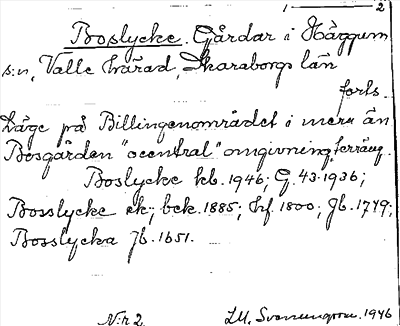 1 — 2
Boslycke. Gårdar i Häggum
s:n, Valle härad, Skaraborgs län
forts.
Läge på Billingenområdet i mera än
Bosgården "ocentral" omgivning, terräng.
Boslycke kb. 1946; G. 43. 1936;
Bosslycke ek; bek. 1885; hf. 1800; Jb. 1779;
Bosslycka Jb. 1651.
N:r 2
1946